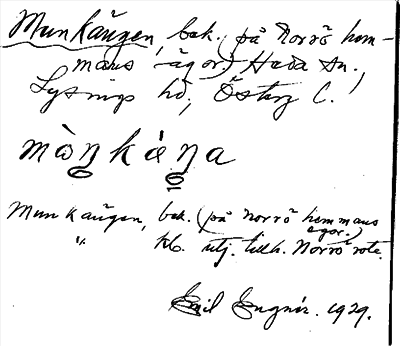 Munkäugen, bek. (på Norrö hem-
mans ägor.) Härads sn.,
Lysings hd, Österg l.
mὼŋkáŋa
Munkäugen, bek. (på Norrö hemmans
ägor.)
" kb. utj. till. Norrö rote.
Emil Engnér. 1929.